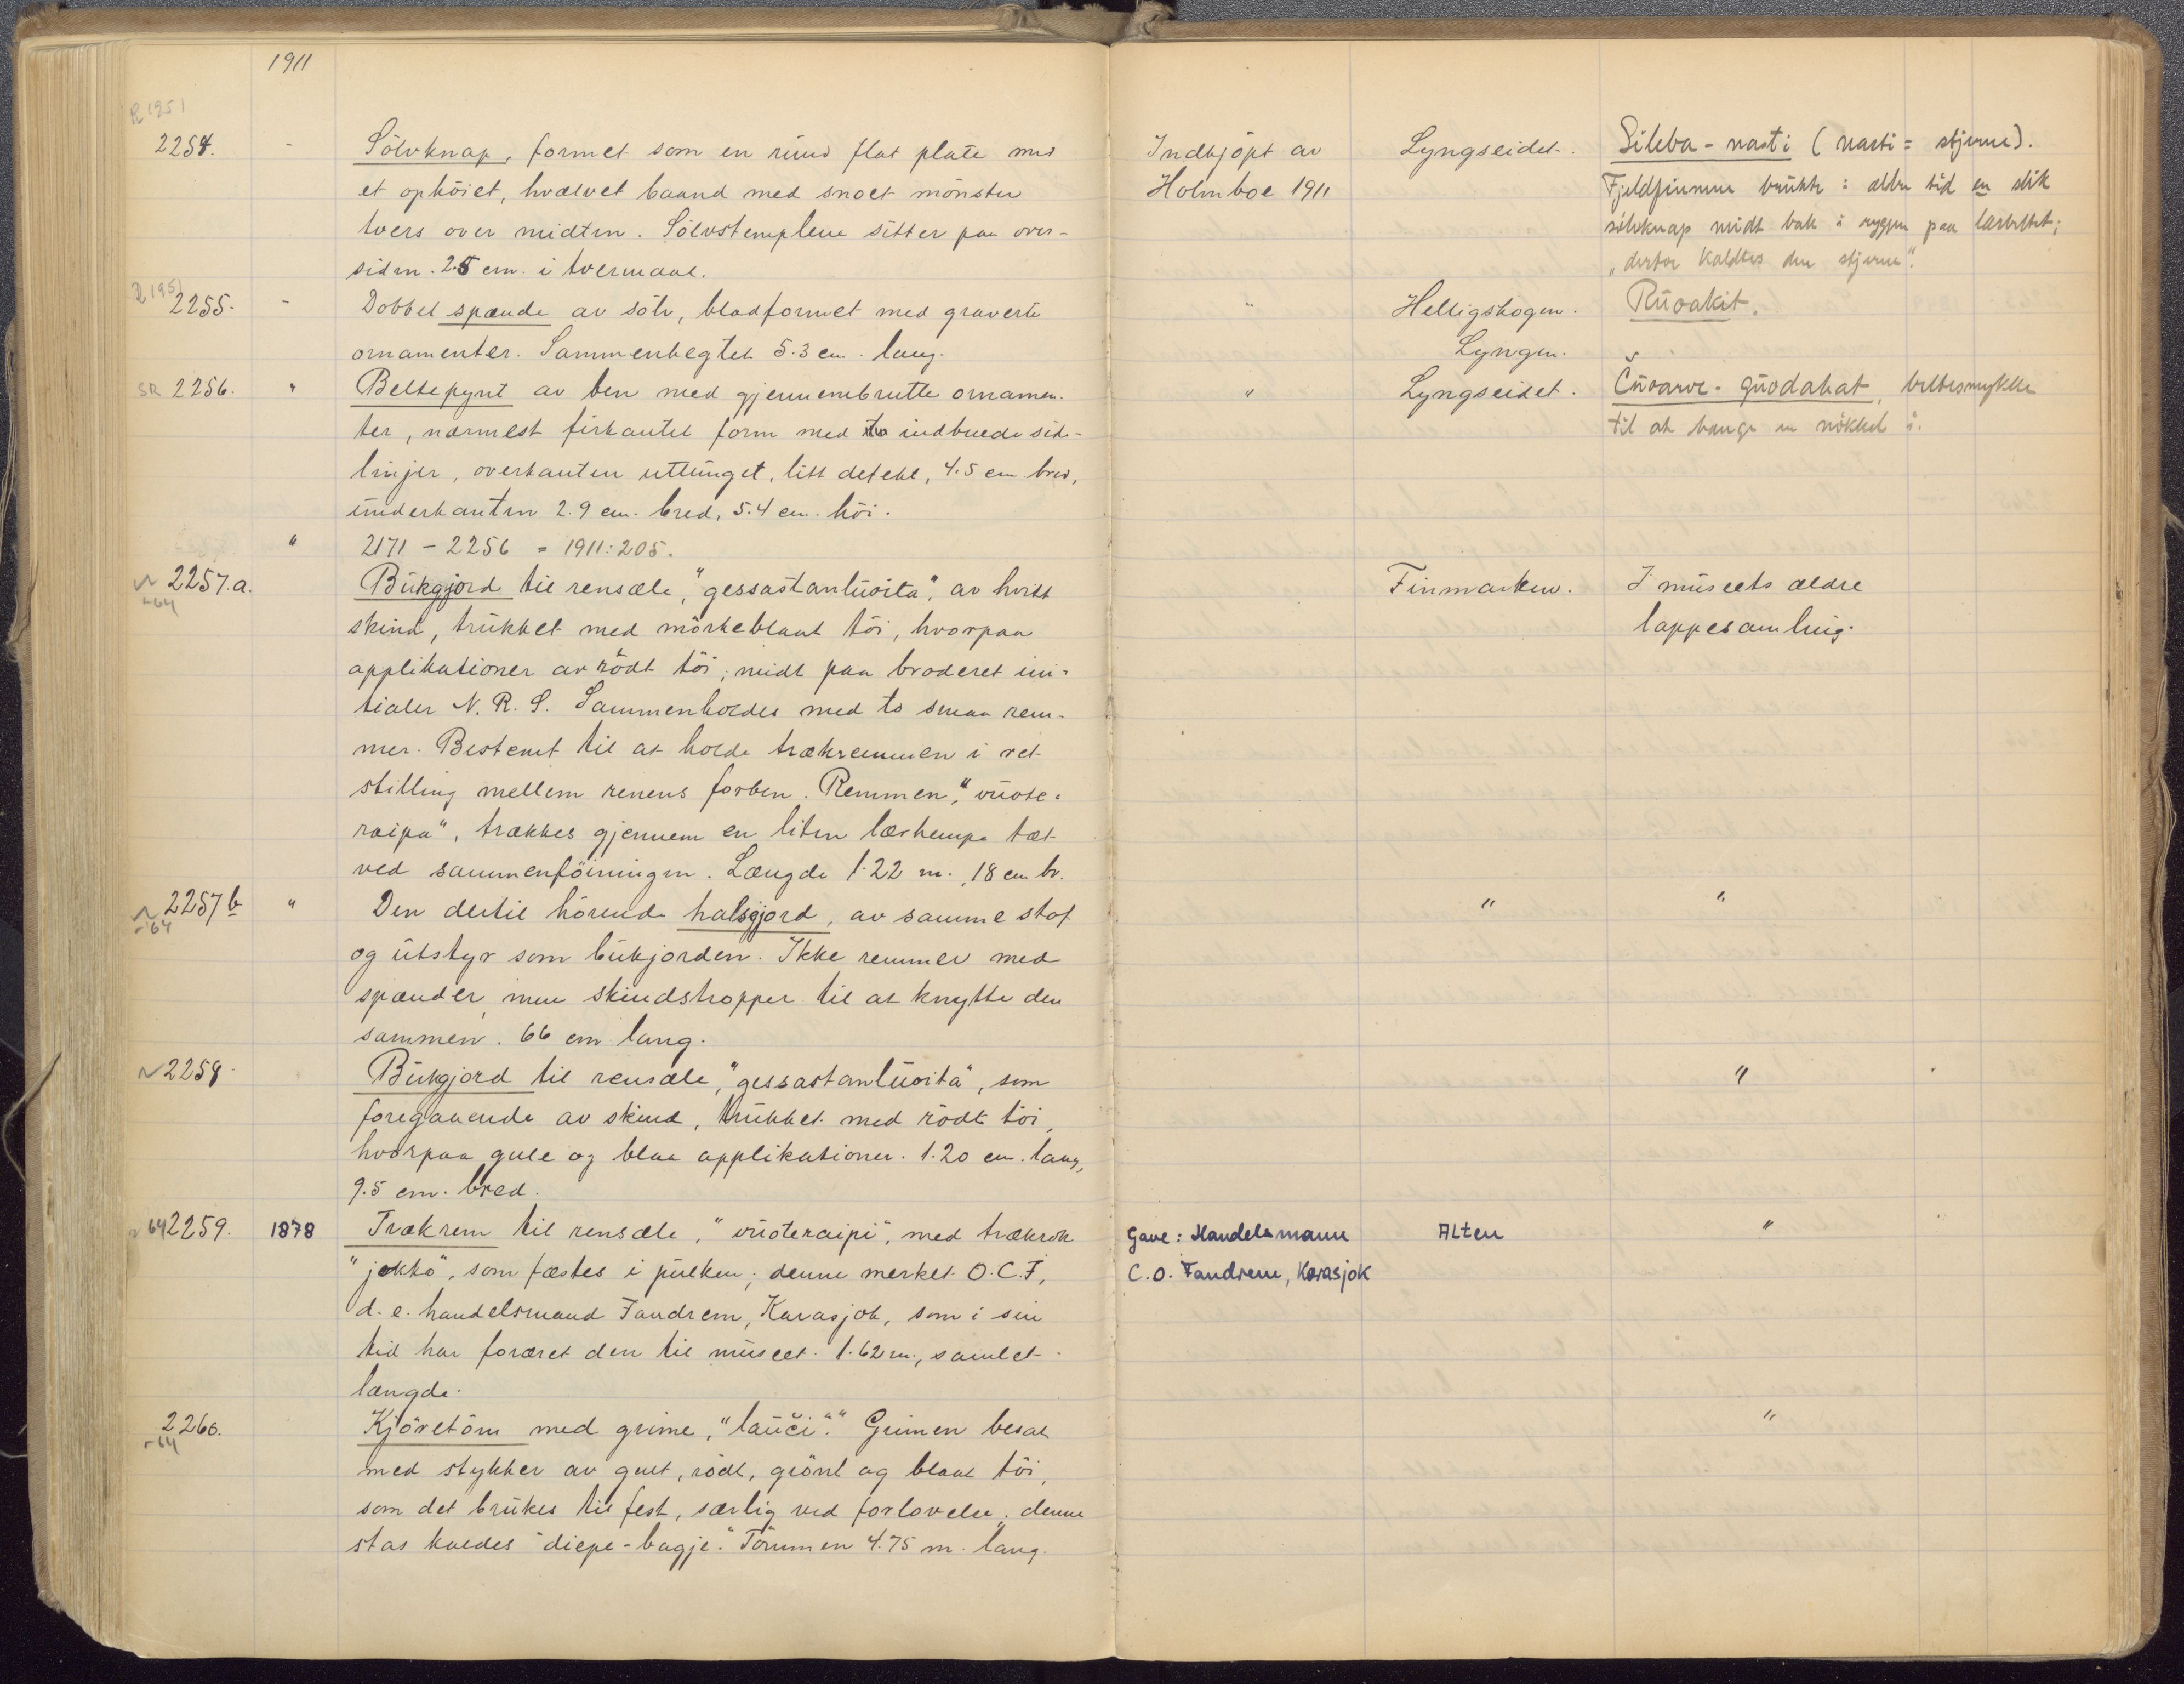 1911
R 1951
2254. - Sölvknap, formet som en rund flat plate med Indkjöpt av Lyngseidet. Sileba-nasti (nasti = stjerne).
et ophöiet, hvælvet baand med snoet mönster Holmboe 1911 Fjeldfinnene brukte i ældre tid en slik
tvers over midten. Sölvstemplene sitter paa over- sölvknap midt bak i ryggen paa lærbeltet;
siden. 2.5 cm. i tvermaal. "derfor kaldtes den stjerne".
R 1951
2255. - Dobbel spænde av sölv, bladformet med graverte " Helligskogen. Rüoakit.
ornamenter. Sammenhegtet 5.3 cm. lang. Lyngen.
SR 2256. " Beltepynt av ben med gjennembrutte ornamen- " Lyngseidet. Čüoarve-güodahat, beltesmykke
ter, nærmest firkantet form med to indbuede side- til at hænge en nökkel i.
linjer, overkanten uttunget, litt defekt, 4.5 cm bred,
underkanten 2.9 cm. bred, 5.4 cm. höi.
" 2171 - 2256 = 1911:205.
2257.a. Bukgjord til rensæle, "gessastantüoita", av hvitt Finmarken. I museets ældre
-64
skind, trukket med mörkeblaat töi, hvorpaa lappesamling.
applikationer av rödt töi; midt paa broderet ini-
tialer N. R. S. Sammenholdes med to smaa rem-
mer. Bestemt til at holde trækremmen i ret
stilling mellem renens forben. Remmen, "vüote-
raipa", trækkes gjennem en liten lærhempe tæt
ved sammenföiningen. Længde 1.22 m., 18 cm br.
2257 b " Den dertil hörende halsgjord, av samme stof " "
-64
og utstyr som bukjorden. Ikke remmer med
spænder, men skindstropper til at knytte den
sammen. 66 cm lang.
2258. Bukgjord til rensæle, "gessastantüoita", som "
foregaaende av skind, trukket med rödt töi,
hvorpaa gule og blaa applikationer. 1.20 cm. lang,
9.5 cm. bred.
64 2259. 1878 Trækrem til rensæle, "vüoteraipi", med trækrok Gave: Handelsmann Alten "
"jokto", som fæstes i pulken; denne merket O.C.F, C.O. Fandrem, Karasjok
d.e. handelsmand Fandrem, Karasjok, som i sin
tid har foræret den til museet. 1.62 m., samlet
længde.
2260. Kjöretöm med grime, "lauči". Grimen besat "
-64
med stykker av gult, rödt, grönt og blaat töi,
som det brukes til fest, særlig ved forlovelse; denne
stas kaldes "diepe-bagje". Tömmen 4.75 m. lang.